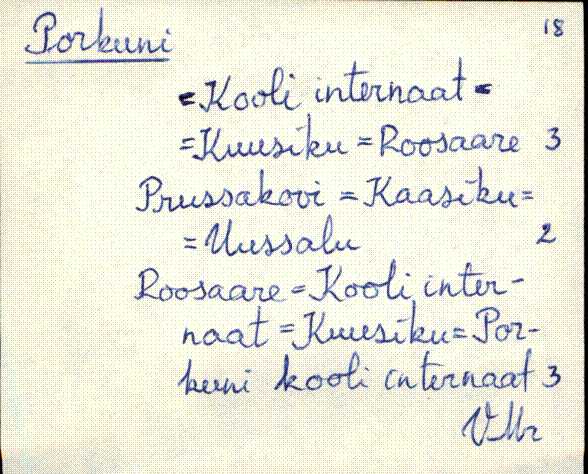 Porkuni 18
= Kooli internaat =
= Kuusiku = Roosaare 3
Prussakovi = Kaasiku =
= Uussalu 2
Roosaare = Kooli inter-
naat = Kuusiku = Por-
kuni kooli internaat 3
VMr